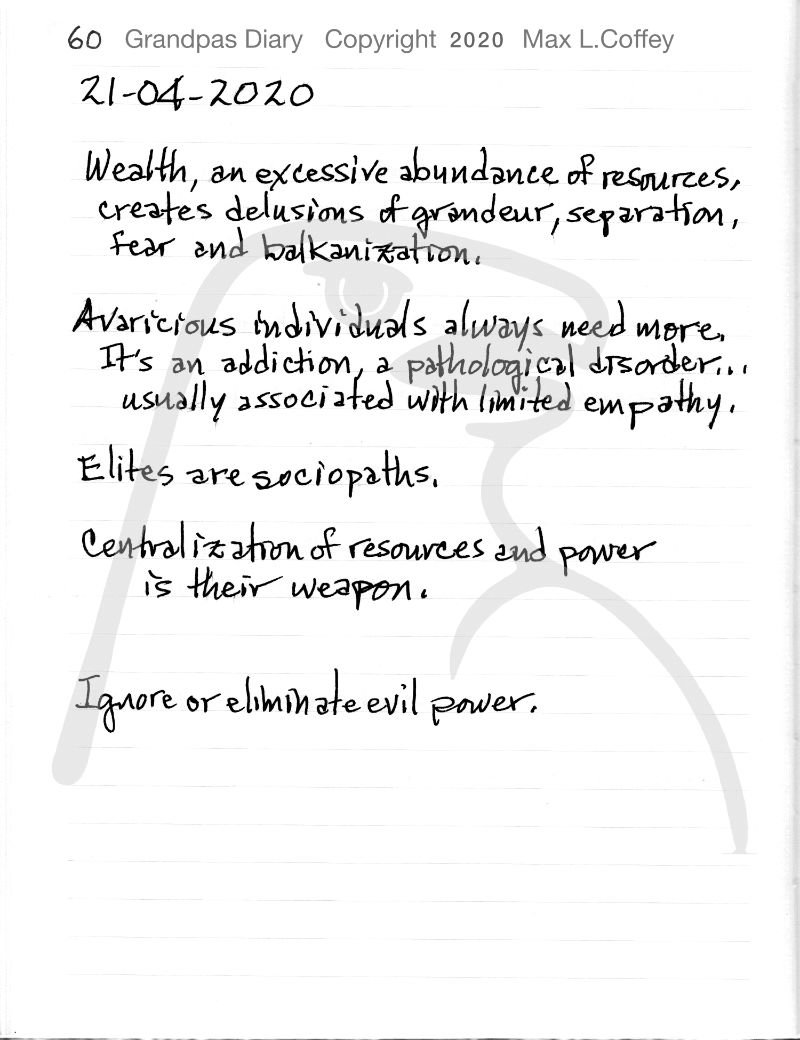 60 Grandpas Diary Copyright 2020 Max L.Coffey
21-04-2020
Wealth, an excessive abundance of resources,
creates delusions of grandeur, separation,
fear and balkanization.
Avaricious individuals always need more.
It's an addiction, a pathological disorder...
usually associated with limited empathy.
Elites are sociopaths.
Centralization of resources and power
is their weapon.
Ignore or eliminate evil power.